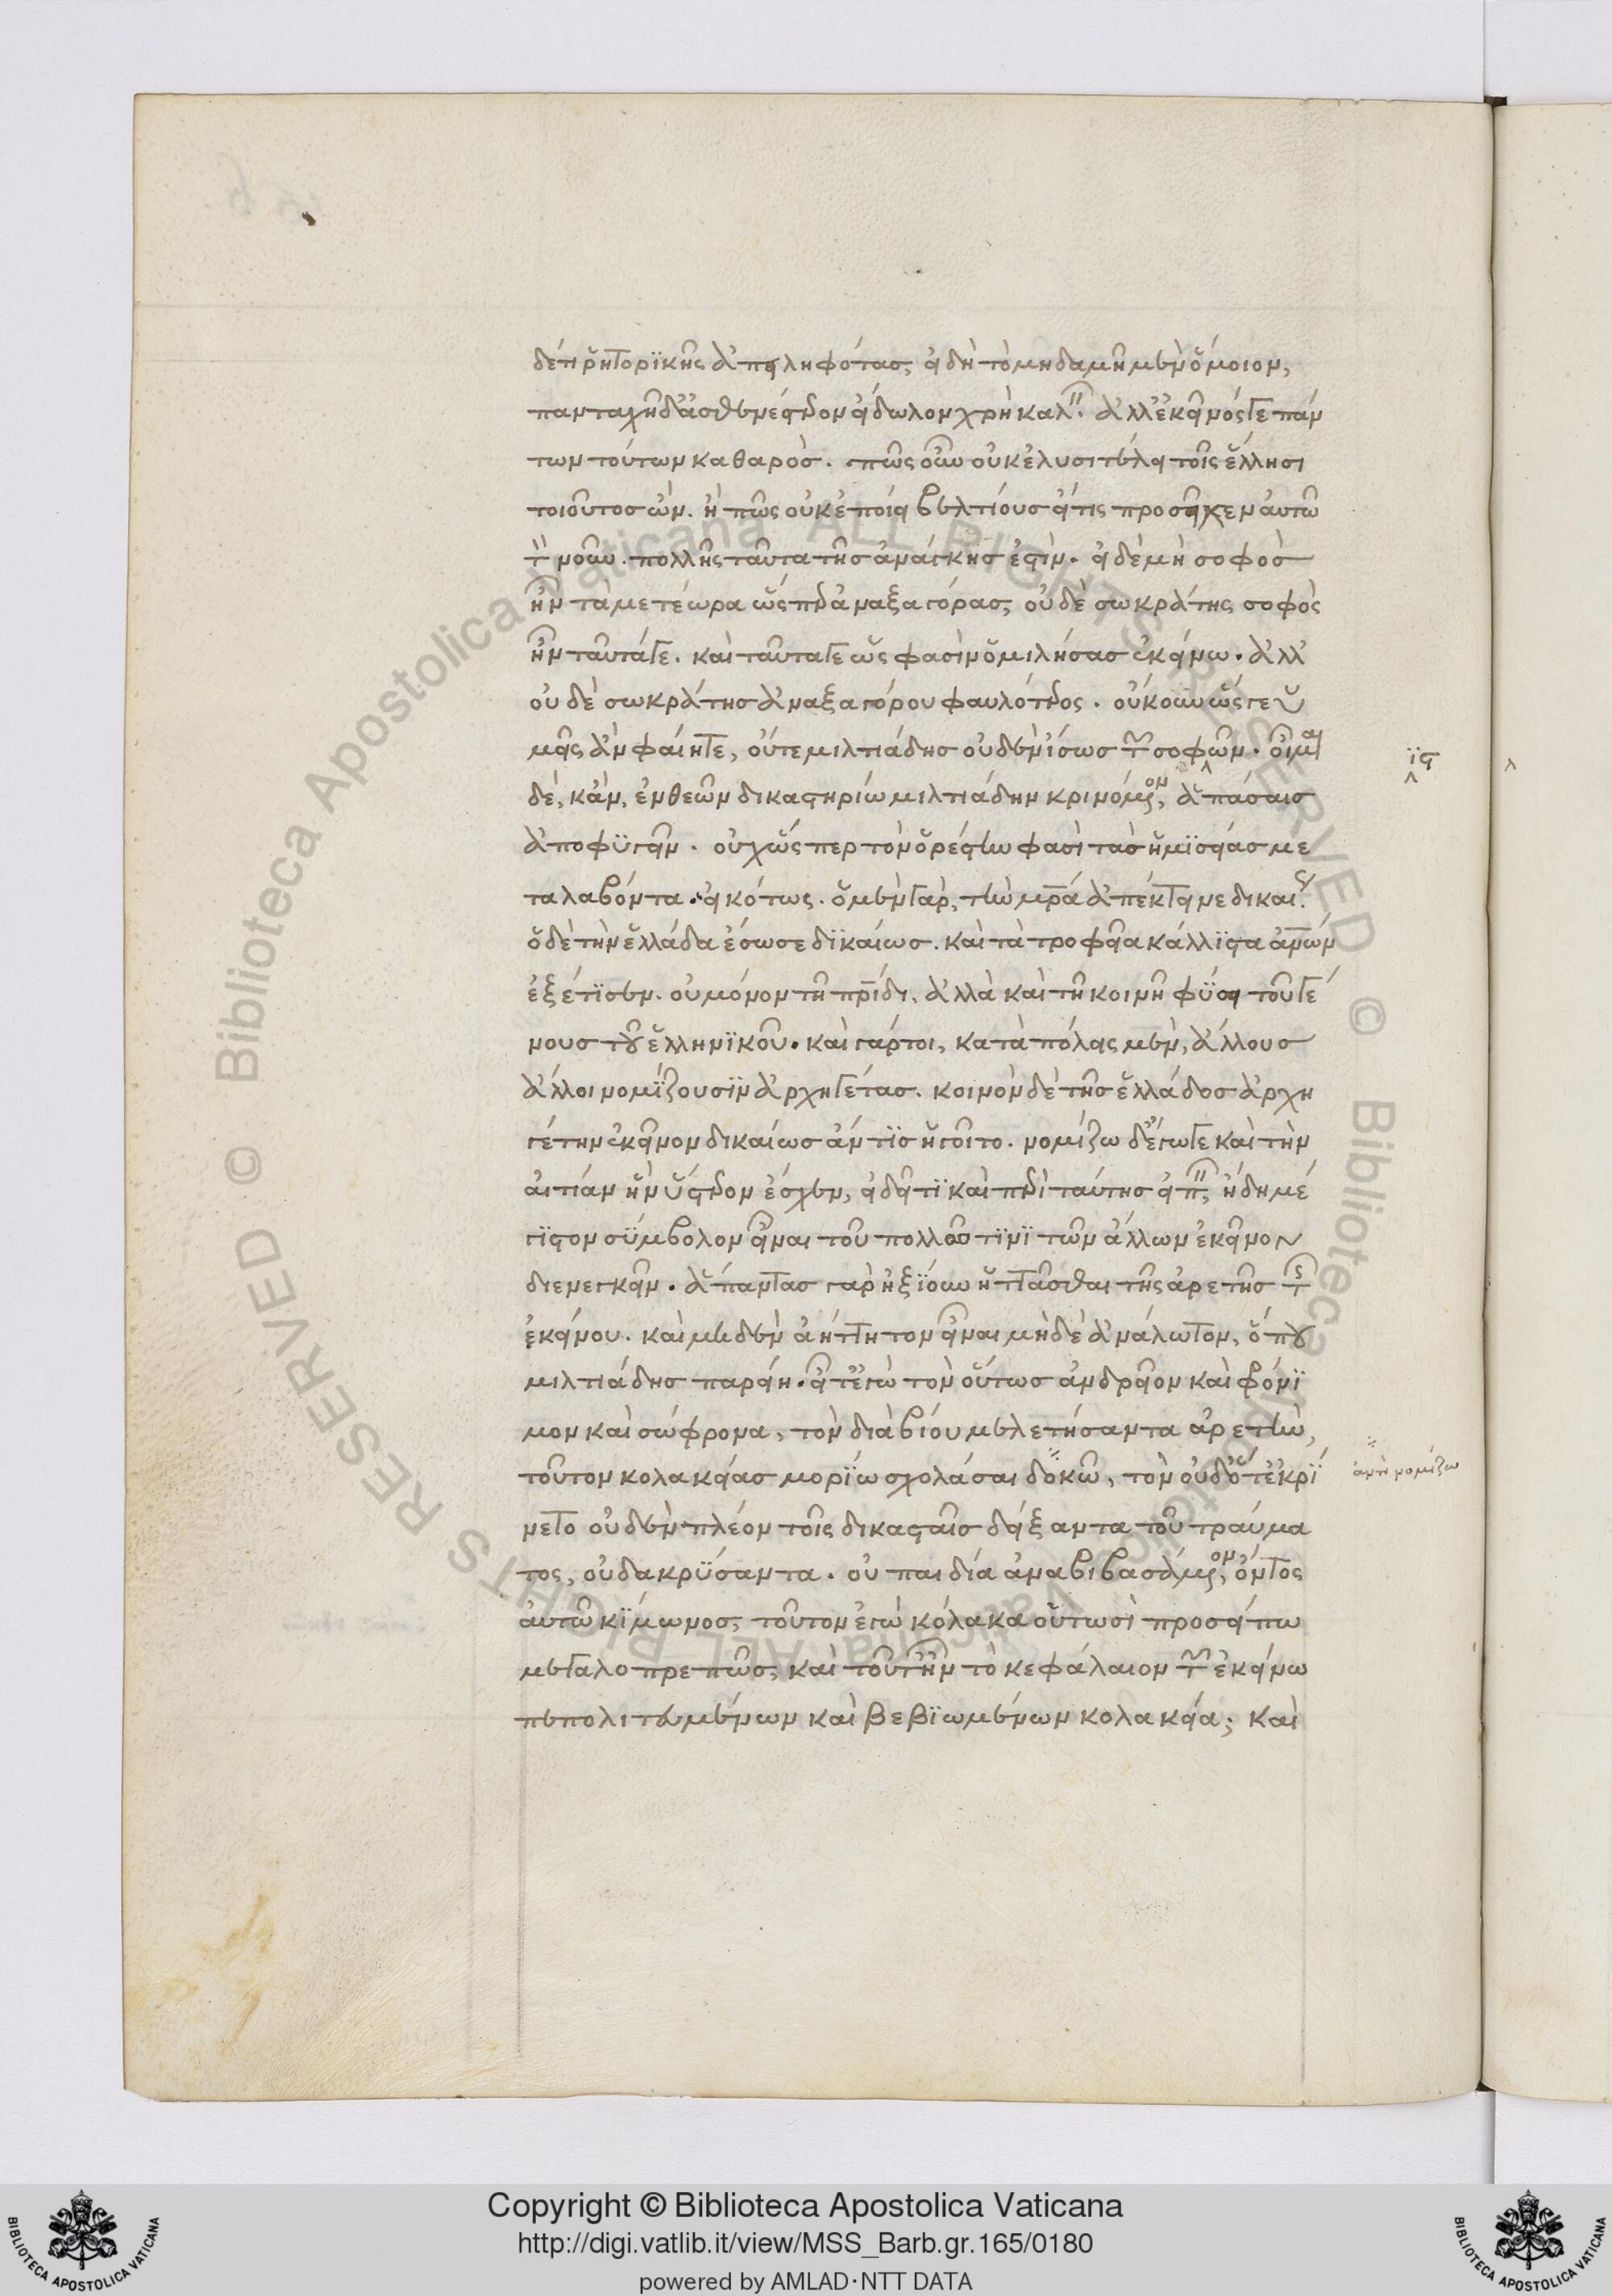 δέ τι ῥητορϊκῆς ἀπειληφότας, εἰ δὴ τὸ μηδαμῆ μὲν ὅμοιον,
πανταχῆ δ' ἀσθενέστερον εἴδωλον χρὴ καλεῖν. ἀλλ' ἐκεῖνός γε πάν
των τούτων καθαρὸς. πῶς οὖν οὐκ ἐλυσιτέλει τοῖς ἕλλησι
τοιοῦτος ὢν. ἢ πῶς οὐκ ἐποίει βελτίους οἵτις προσεῖχεν αὐτῶ
τὸν νοῦν. πολλῆς ταῦτα τῆς ἀνάγκης ἐστίν. εἰ δὲ μὴ σοφὸς
ἦν τὰ μετέωρα ὥσπερ ἀναξαγόρας, οὐδὲ σωκράτης σοφὸς
ἦν ταῦτά γε. καὶ ταῦτά γε ὥς φασὶν ὁμιλήσας ἐκείνω. ἀλλ'
οὐδὲ σωκράτης ἀναξαγόρου φαυλότερος. οὔκουν ὥς γε ὑ
μεῖς ἂν φαίητε, οὔτε μιλτιάδης οὐδενὸς ἴσως τῶν σοφῶν. οἶμαι
δέ, κἂν, ἐν θεῶν δικαστηρίω μιλτιάδην κρινόμενον, ἁπάσαις
ἀποφϋγεῖν. οὐχ ὥσπερ τὸν ὀρέστην φασὶ τὰς ἡμϊσείας με
ταλαβόντα. εἰκότως. ὁ μὲν γὰρ, τὴν μρα ἀπέκτεινε δικαίως.
ὁ δὲ τὴν ἑλλάδα ἔσωσε δϊκαίως. καὶ τὰ τροφεῖα κάλλϊστα ἀνων
ἐξέτϊσεν. οὐ μόνον τῆ πρίδι, ἀλλὰ καὶ τῆ κοινῆ φύσει τοῦ γέ
νους τοῦ ἑλληνϊκοῦ. καὶ γάρτοι, κατὰ πόλεις μὲν, ἄλλους
ἄλλοι νομίζουσϊν ἀρχηγέτας. κοινὸν δὲ τῆς ἑλλάδος ἀρχη
γέτην ἐκεῖνον δικαίως ἄν τϊς ἡγοῖτο. νομίζω δ' ἔγωγε καὶ τὴν
αἰτίαν ἣν ὕστερον ἔσχεν, εἰ δεῖ τϊ καὶ περὶ ταύτης εἰπεῖν, ἤδη μέ
γϊστον σύμβολον εἶναι τοῦ πολλοστϊνϊ τῶν ἄλλων ἐκεῖνον
διενεγκεῖν. ἅπαντας γὰρ ἠξϊουν ἡττᾶσθαι τῆς ἀρετῆς τῆς
ἐκείνου. καὶ μηδὲν ἀήττητον εἶναι μηδὲ ἀνάλωτον, ὅπου
μιλτιάδης παρείη. εἶτ' ἐγὼ τὸν οὕτως ἀνδρεῖον καὶ φρόνϊ
μον καὶ σώφρονα, τὸν διὰ βίου μελετήσαντα ἀρετὴν,
τοῦτον κολακείας μορίω σχολάσαι δοκῶ, τὸν οὐδ' ὅτ' ἐκρί
νετο οὐδὲν πλέον τοῖς δικασταῖς δείξαντα τοῦ τραύμα
τος, οὐ δακρϋσαντα. οὐ παιδία ἀναβιβασάμενον, ὄντος
αὐτῶ κϊμωνος, τοῦτον ἐγὼ κόλακα οὕτωσὶ προσείπω
μεγαλοπρεπῶς, καὶ τοῦτ' ἦν τὸ κεφάλαιον τῶν ἐκείνω
πεπολιτευμένων καὶ βεβϊωμένων κολακεία; καὶ
ἀντὶ νομίζω
Copyright © Biblioteca Apostolica Vaticana
http://digi.vatlib.it/view/MSS_Barb.gr.165/0180
powered by AMLAD·NTT DATA